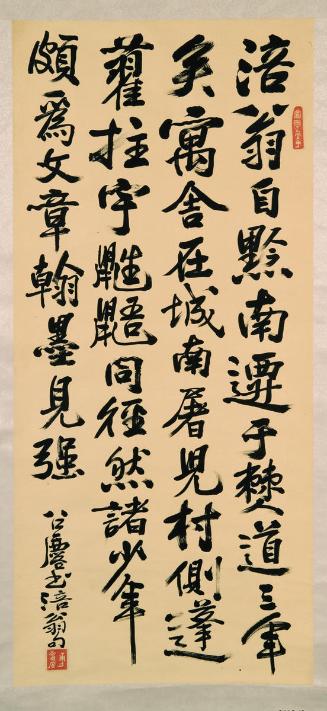 涪翁自黔南遷于僰道三年
矣寓舍在城南屠兒村側蓬
藋拄宇鼪鼯同徑然諸少年
頗爲文章翰墨見强
涪翁